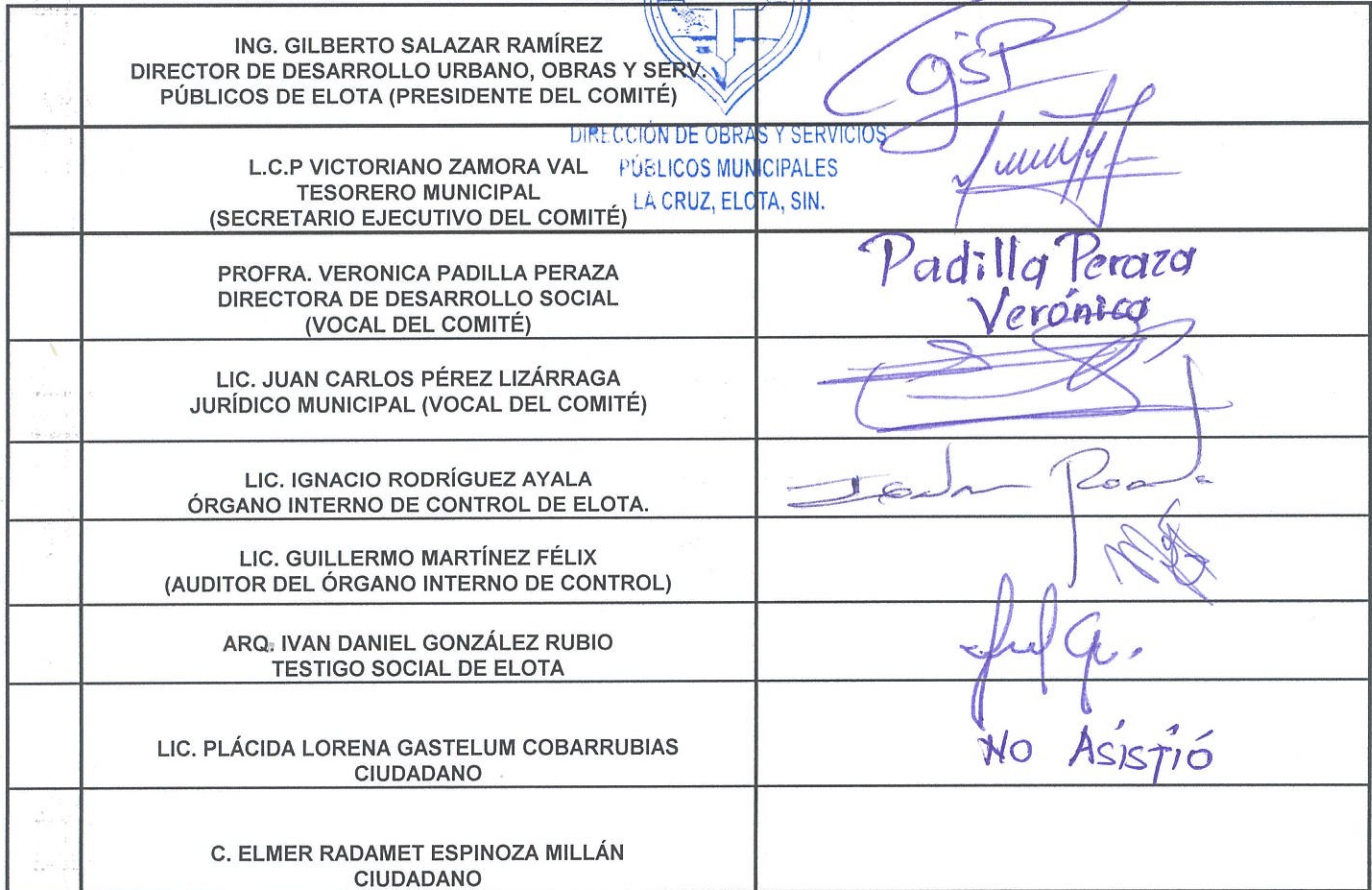 ING. GILBERTO SALAZAR RAMÍREZ
DIRECTOR DE DESARROLLO URBANO, OBRAS Y SERV.
PÚBLICOS DE ELOTA (PRESIDENTE DEL COMITÉ)
DIRECCIÓN DE OBRAS Y SERVICIOS
PÚBLICOS MUNICIPALES
LA CRUZ, ELOTA, SIN.
L.C.P VICTORIANO ZAMORA VAL
TESORERO MUNICIPAL
(SECRETARIO EJECUTIVO DEL COMITÉ)
PROFRA. VERONICA PADILLA PERAZA
DIRECTORA DE DESARROLLO SOCIAL
(VOCAL DEL COMITÉ)
Padilla Peraza
Verónica
LIC. JUAN CARLOS PÉREZ LIZÁRRAGA
JURÍDICO MUNICIPAL (VOCAL DEL COMITÉ)
LIC. IGNACIO RODRÍGUEZ AYALA
ÓRGANO INTERNO DE CONTROL DE ELOTA.
LIC. GUILLERMO MARTÍNEZ FÉLIX
(AUDITOR DEL ÓRGANO INTERNO DE CONTROL)
ARQ. IVAN DANIEL GONZÁLEZ RUBIO
TESTIGO SOCIAL DE ELOTA
LIC. PLÁCIDA LORENA GASTELUM COBARRUBIAS
CIUDADANO
NO ASISTIÓ
C. ELMER RADAMET ESPINOZA MILLÁN
CIUDADANO